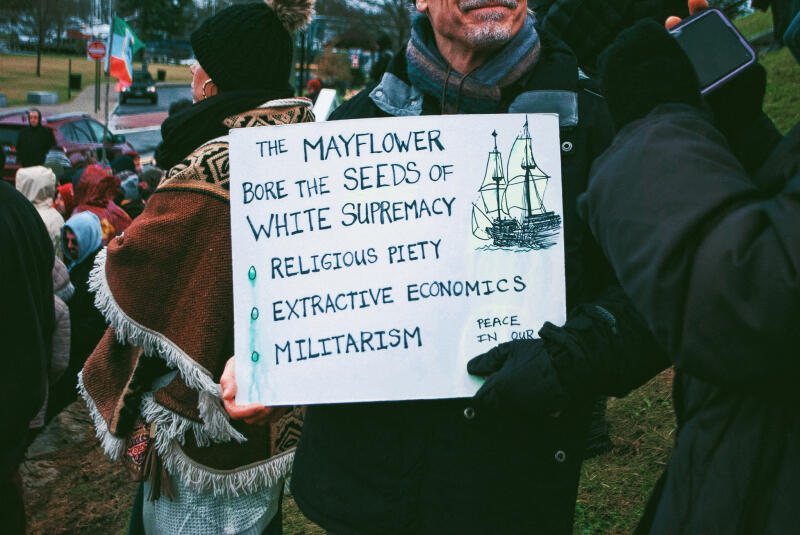 THE MAYFLOWER
BORE THE SEEDS OF
WHITE SUPREMACY
RELIGIOUS PIETY
EXTRACTIVE ECONOMICS
MILITARISM
PEACE
IN OUR